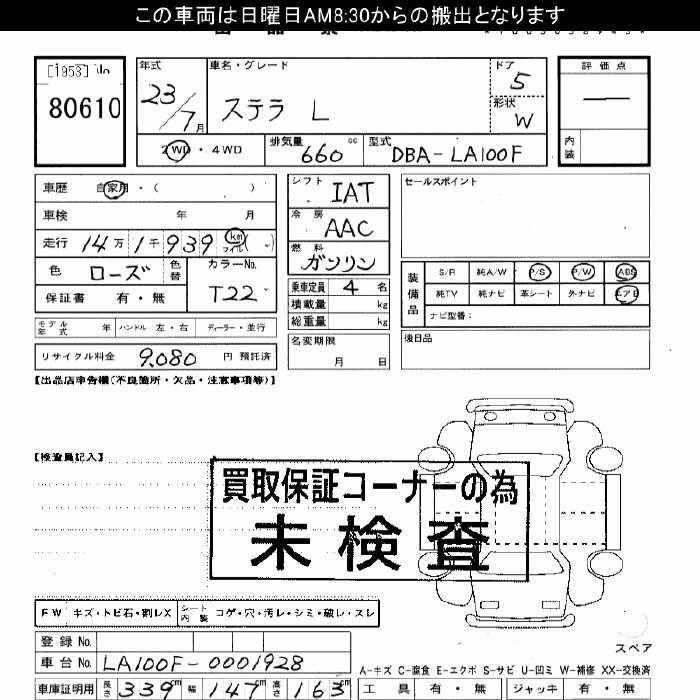 この車両は日曜日AM8:30からの搬出となります
[1953] No
80610
年式 23/7月
車名・グレード ステラ L
ドア 5
形状 W
評価点 —
内装
2WD・4WD
排気量 660 cc
型式 DBA-LA100F
車歴 自家用・( )
車検 年 月
走行 14万1千939 km マイル( )
色 ローズ 色替
カラーNo. T22
保証書 有・無
モデル年式 年 ハンドル 左・右 ディーラー・並行
リサイクル料金 9,080 円 預託済
シフト IAT
冷房 AAC
燃料 ガソリン
乗車定員 4 名
積載量 kg
総重量 kg
名変期限 月 日
セールスポイント
装備品
S/R 純A/W P/S P/W ABS
純TV 純ナビ 革シート 外ナビ エアB
ナビ型番:
後日品
【出品店申告欄(不良箇所・欠品・注意事項等)】
【検査員記入】
買取保証コーナーの為
未検査
FW キズ・トビ石・割レX
シート内装 コゲ・穴・汚レ・シミ・破レ・スレ
登録No.
車台No. LA100F-0001928
車庫証明用 長さ 339cm 幅 147cm 高さ 163cm
スペア
A-キズ C-腐食 E-エクボ S-サビ U-凹ミ W-補修 XX-交換済
工具 有・無 ジャッキ 有・無